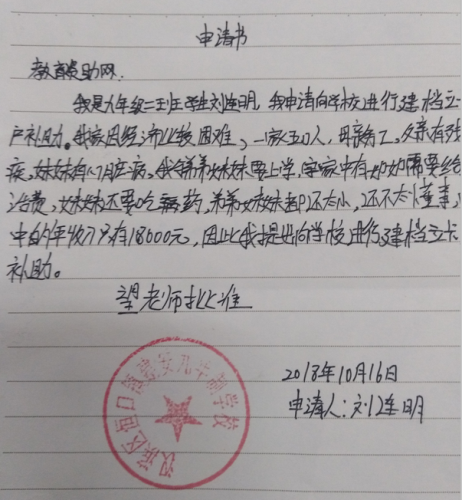 申请书
教育资助网.
我是九年级二班学生刘连明,我申请向学校进行建档立
户补助。我家因经济比较困难,一家五口人,母亲务工,父亲有残
疾,妹妹有心脏病,我和弟弟妹妹要上学,家中有奶奶需要给
治费,妹妹还要吃药,弟弟妹妹都还太小,还不太懂事,
中的年收入只有18000元,因此我提出向学校进行建档立卡
补助。
望老师批准
2018年10月16日
申请人:刘连明
汉滨区恒口九年制学校